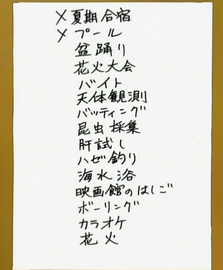 ×夏期合宿
×プール
盆踊り
花火大会
バイト
天体観測
バッティング
昆虫採集
肝試し
ハゼ釣り
海水浴
映画館のはしご
ボーリング
カラオケ
花火